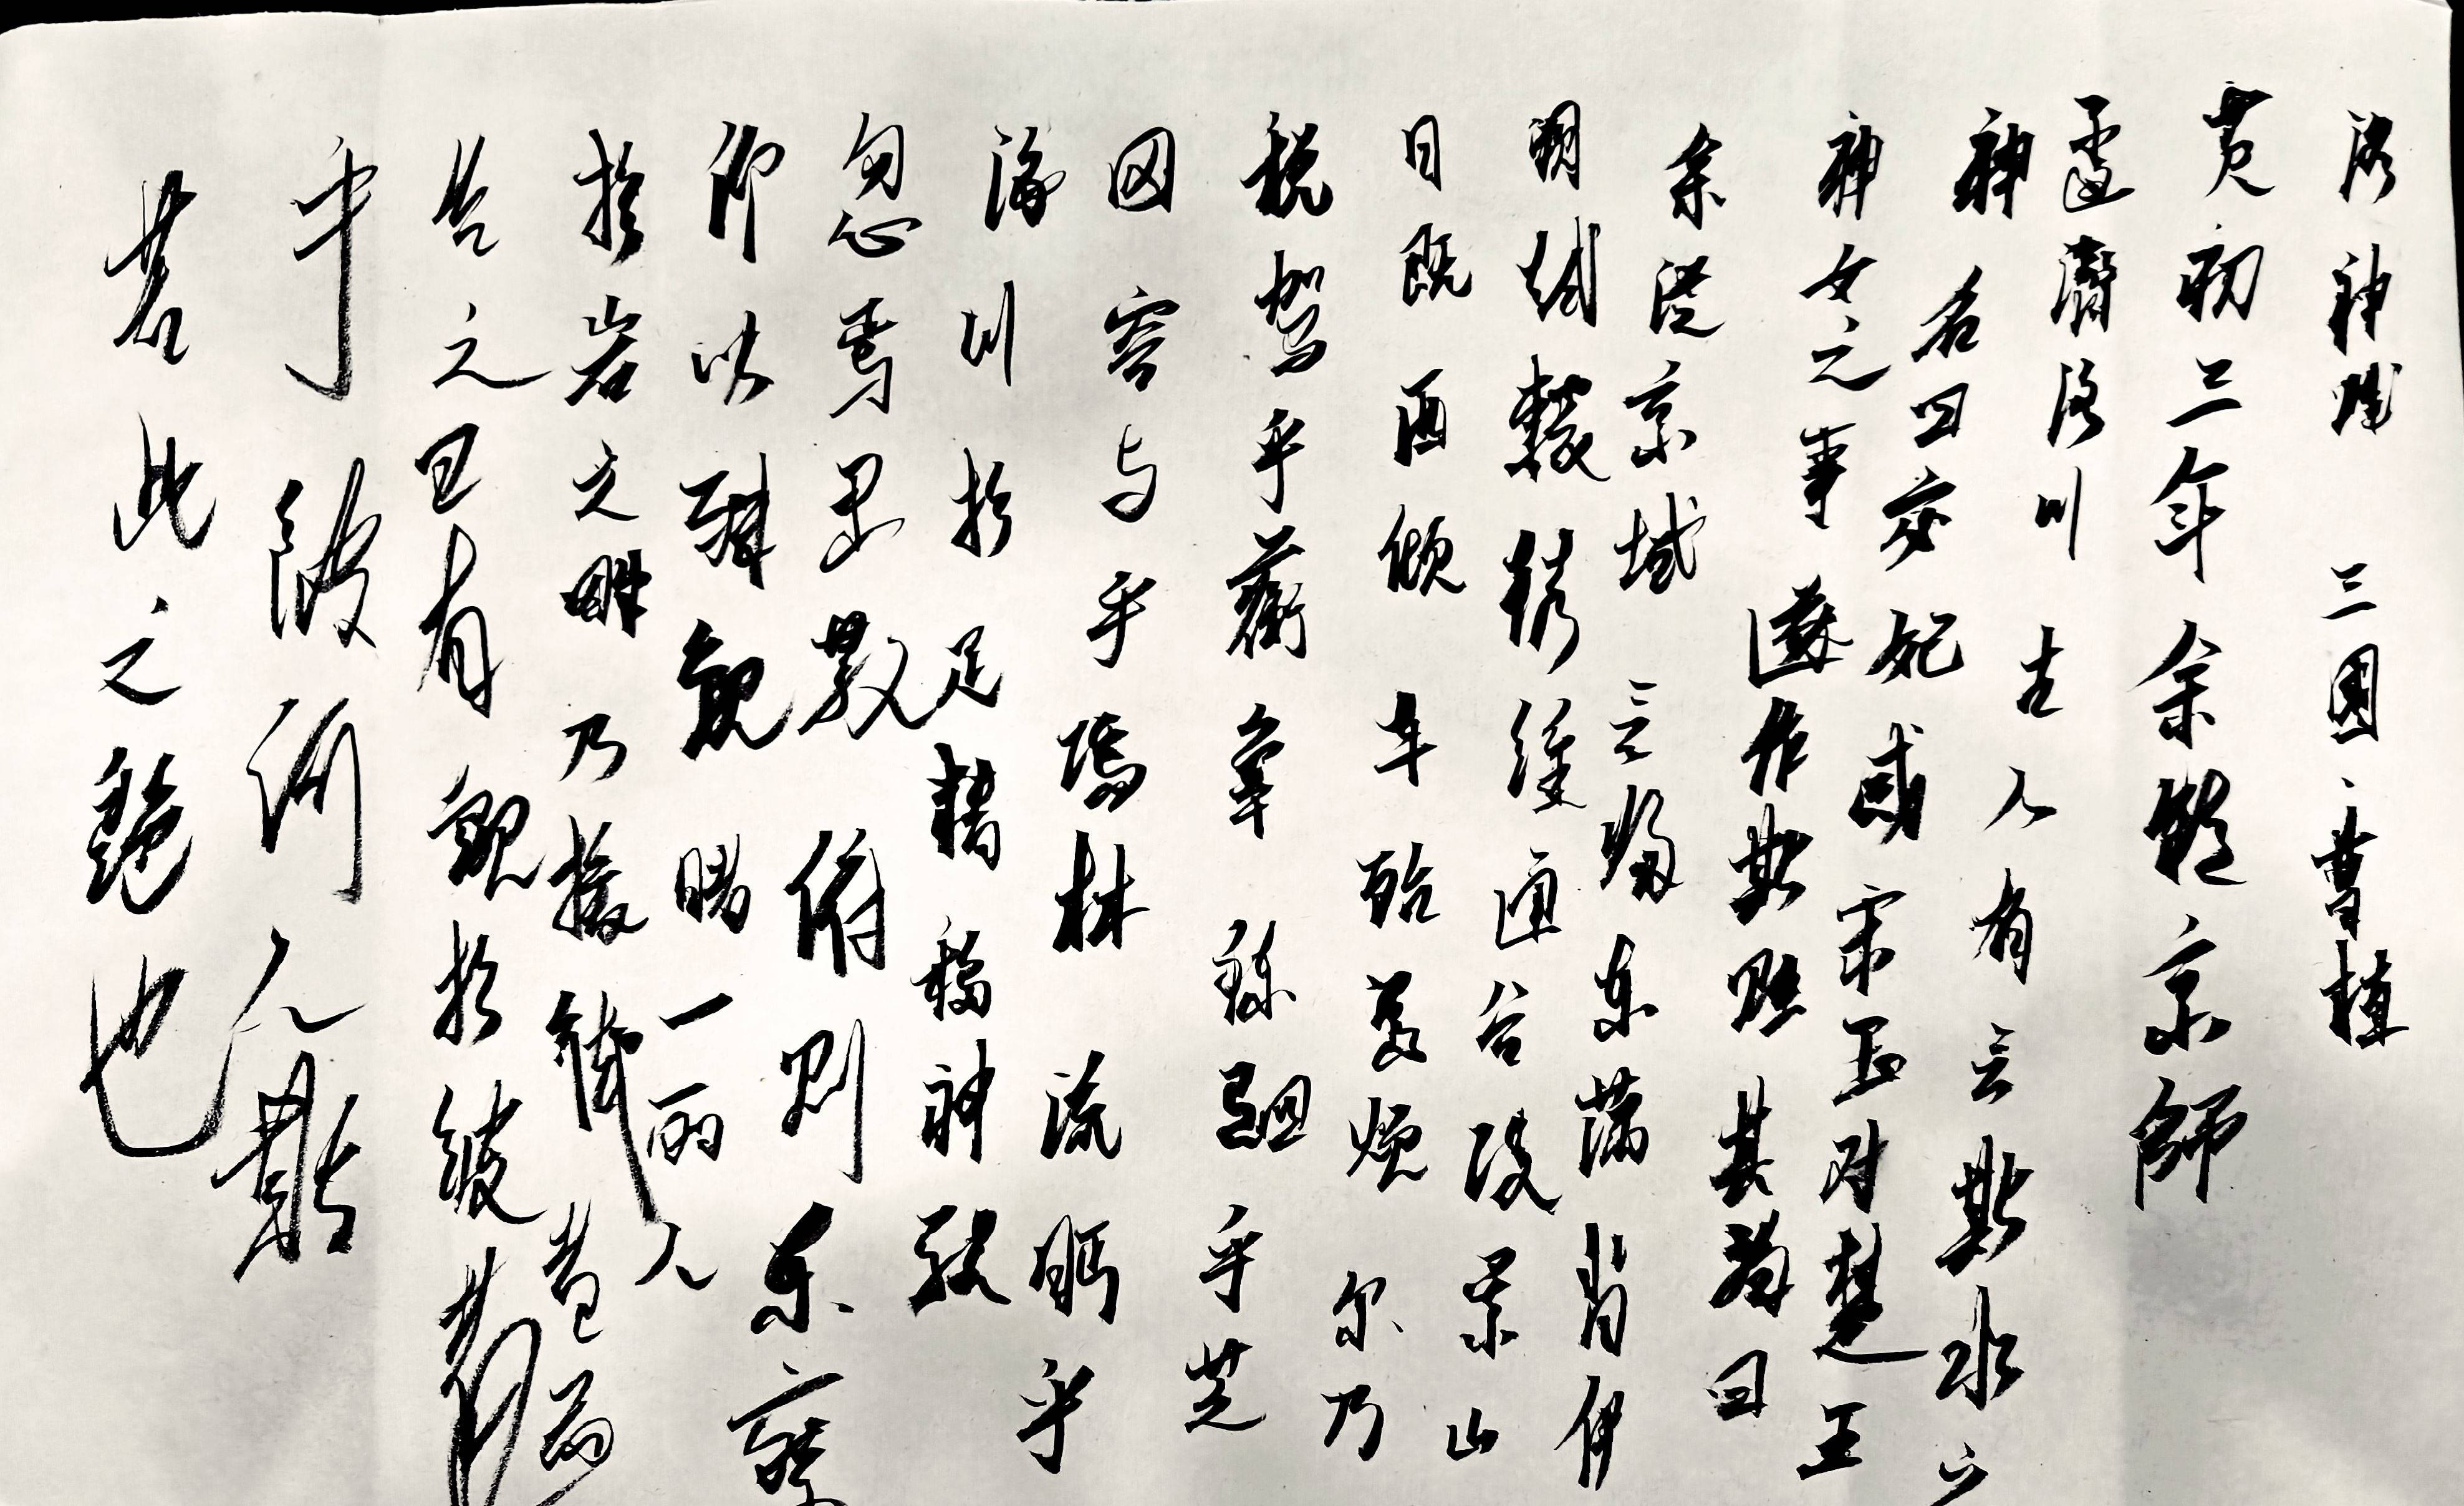 洛神赋 三国·曹植
黄初三年余朝京师
还济洛川古人有言斯水之
神名曰宓妃感宋玉对楚王
神女之事遂作斯赋其词曰
余从京域言归东藩背伊
阙越轘辕经通谷陵景山
日既西倾车殆马烦尔乃
税驾乎蘅皋秣驷乎芝
田容与乎阳林流眄乎
洛川于是精移神骇
忽焉思散俯则未察
仰以殊观睹一丽人
于岩之畔乃援御者而
告之曰有觌于彼者
乎彼何人斯
若此之艳也